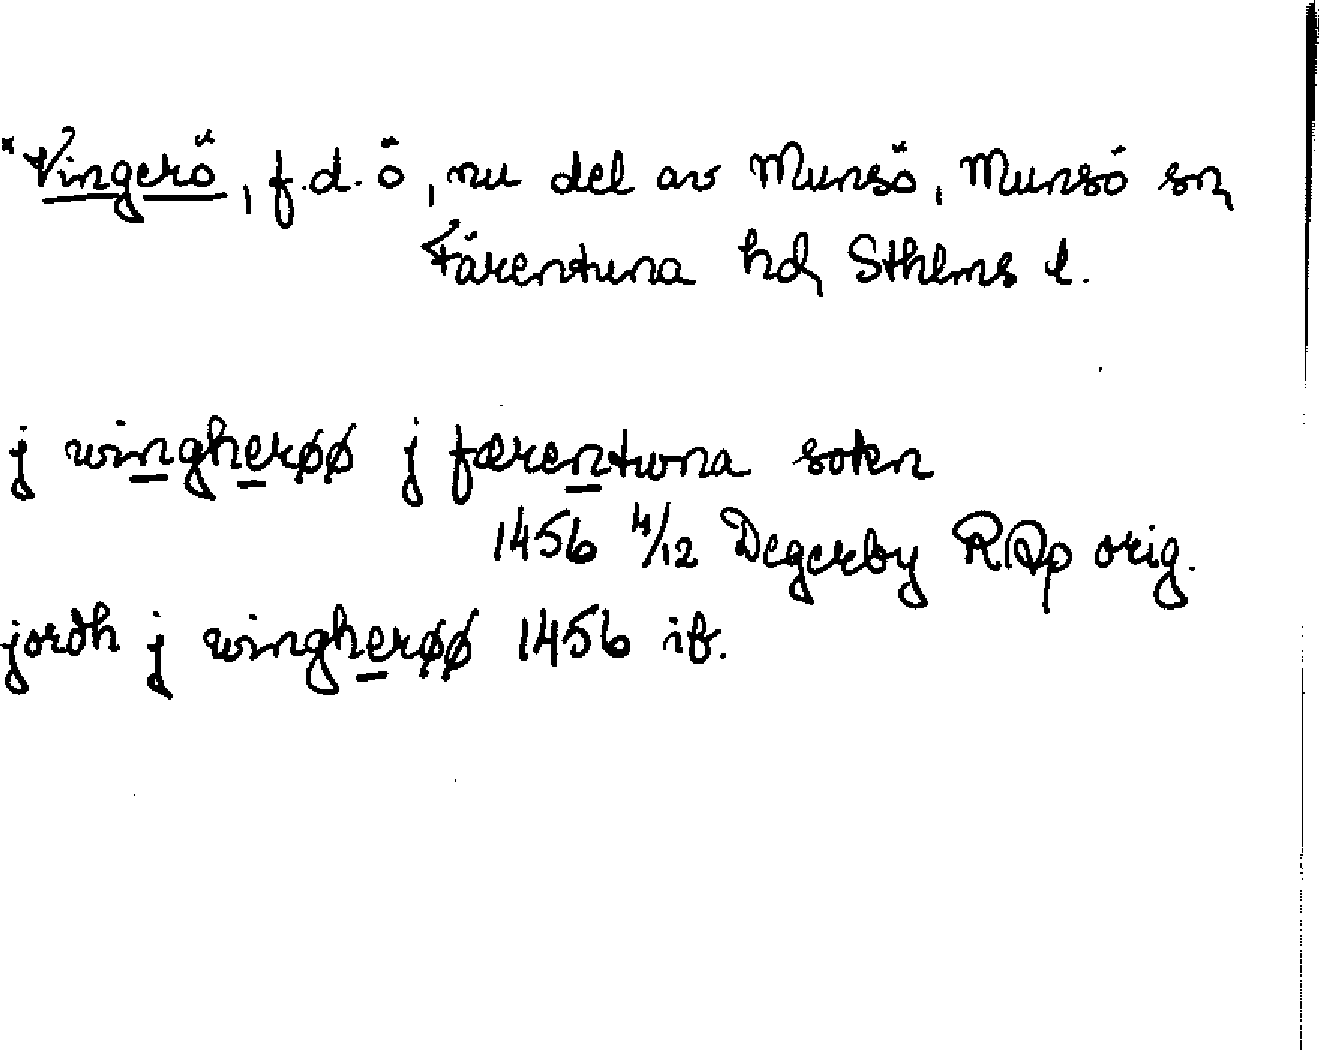 *Vingerö, f.d. ö, nu del av Munsö, Munsö sn
Färentuna hd, Sthlms l.
j wingherøø j færentwna sokn
1456 4/12 Degerby RAp orig.
jordh j wingherøø 1456 ib.